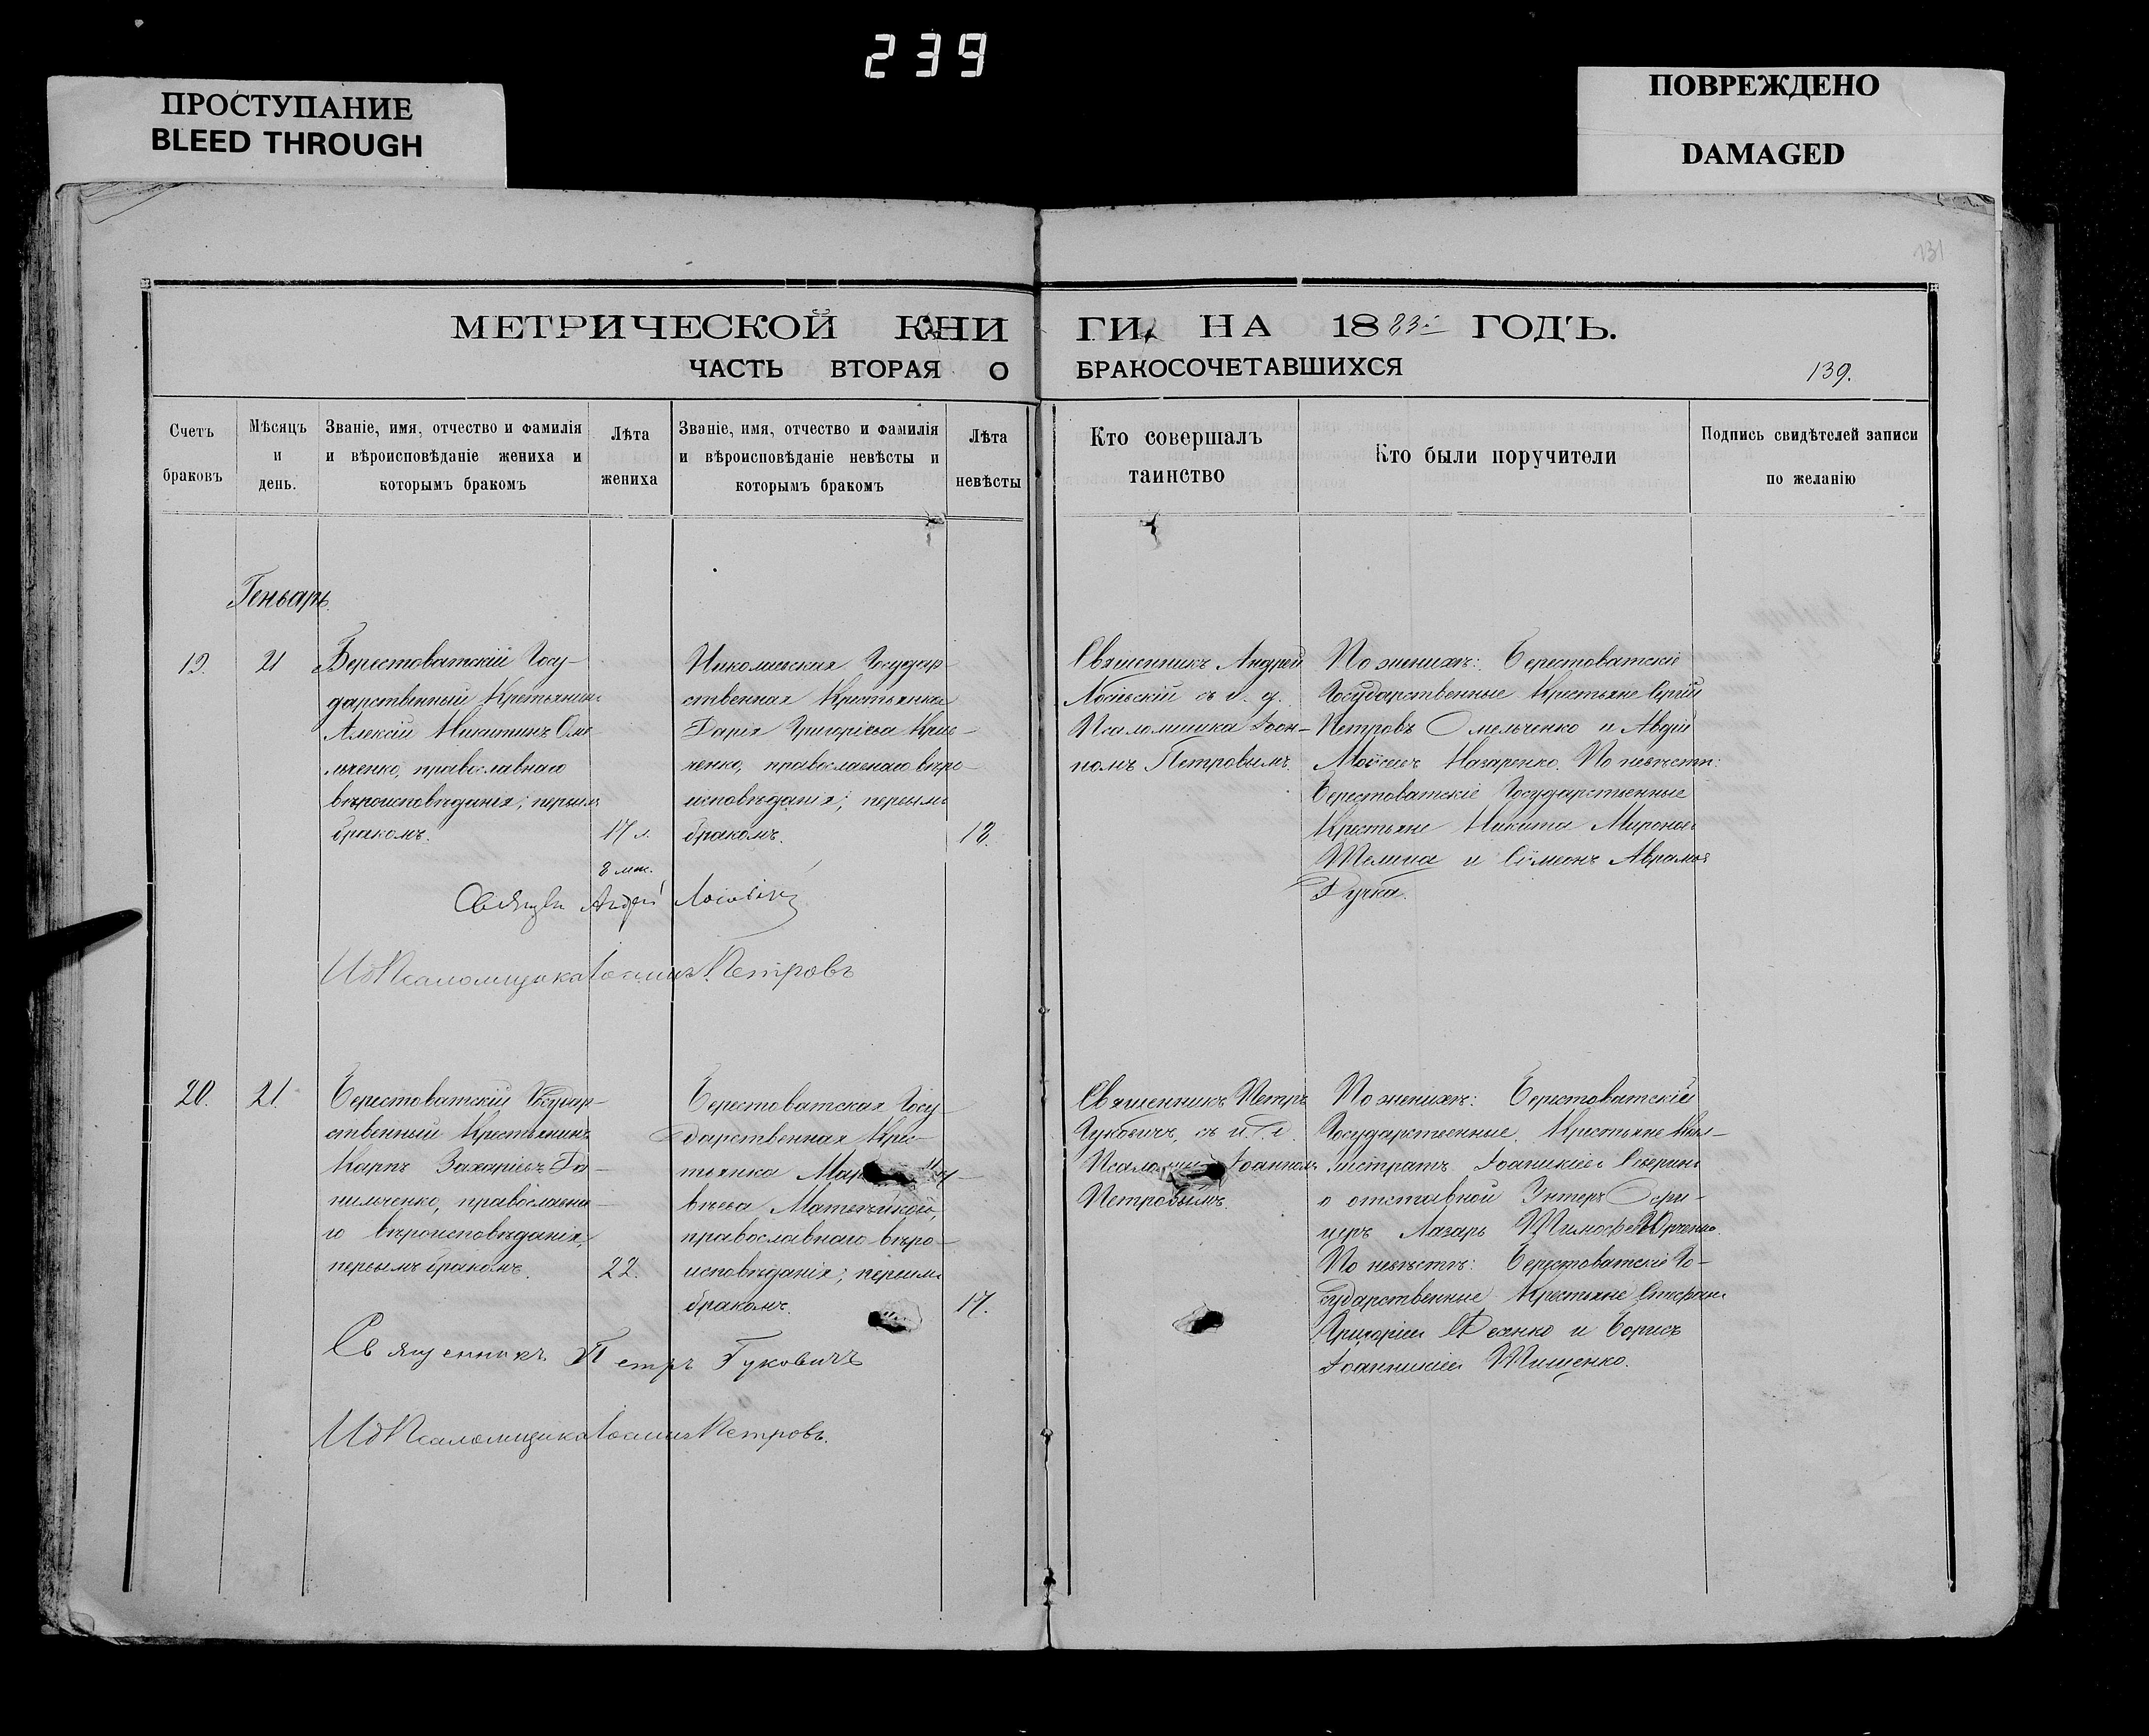 239
ПРОСТУПАНИЕ
BLEED THROUGH
ПОВРЕЖДЕНО
DAMAGED
131
МЕТРИЧЕСКОЙ КНИ ГИ НА 1883 ГОДЪ.
ЧАСТЬ ВТОРАЯ О БРАКОСОЧЕТАВШИХСЯ
139.
Счетъ
браковъ
Мѣсяцъ
и
день.
Званіе, имя, отчество и фамилія
и вѣроисповѣданіе жениха и
которымъ бракомъ
Лѣта
жениха
Званіе, имя, отчество и фамилія
и вѣроисповѣданіе невѣсты и
которымъ бракомъ
Лѣта
невѣсты
Кто совершалъ
таинство
Кто были поручители
Подпись свидѣтелей записи
по желанію
Геньварь.
19.
21
Берестоватскій Госу-
дарственный Крестьянинъ
Алексій Никитинъ Оме
льченко, православнаго
вѣроисповѣданія; первымъ
бракомъ.
17 л.
8 мѣс.
Николаевская Государ-
ственная Крестьянка
Дарія Григоріева
православнаго вѣро-
исповѣданія; первымъ
бракомъ.
18.
Священникъ Андрей
съ и. д.
Псаломщика Іоан-
номъ Петровымъ.
По женихѣ: Берестоватскіе
Государственные Крестьяне Сергій
Петровъ Омельченко и Авдій
Моѵсіевъ Назаренко. По невѣстѣ:
Берестоватскіе Государственные
Крестьяне Никита Мироновъ
и Сѵмеонъ Аврамовъ
Гучка.
Андрей
ИдПсаломщика Іоаннъ Петровъ
20.
21.
Берестоватскій Государ-
ственный Крестьянинъ
Карпъ Захаріевъ Да-
нильченко, православна-
го вѣроисповѣданія,
первымъ бракомъ.
22.
Берестоватская Госу-
дарственная Крес-
тьянка Мар
вѣева
православнаго вѣро-
исповѣданія; первымъ
бракомъ.
17.
Священникъ Петръ
Гуковичъ, съ и. д.
Іоанномъ
Петровымъ.
По женихѣ: Берестоватскіе
Государственные Крестьяне Кал-
листратъ Іоанникіевъ
и отставной Унтеръ Офи-
церъ Лазарь Тимофеевъ Юрченко.
По невѣстѣ: Берестоватскіе Го-
сударственные Крестьяне Стефанъ
Григоріевъ и Борисъ
Іоанникіевъ Тищенко.
Священникъ Петръ Гуковичъ
ИдПсаломщика Іоаннъ Петровъ.